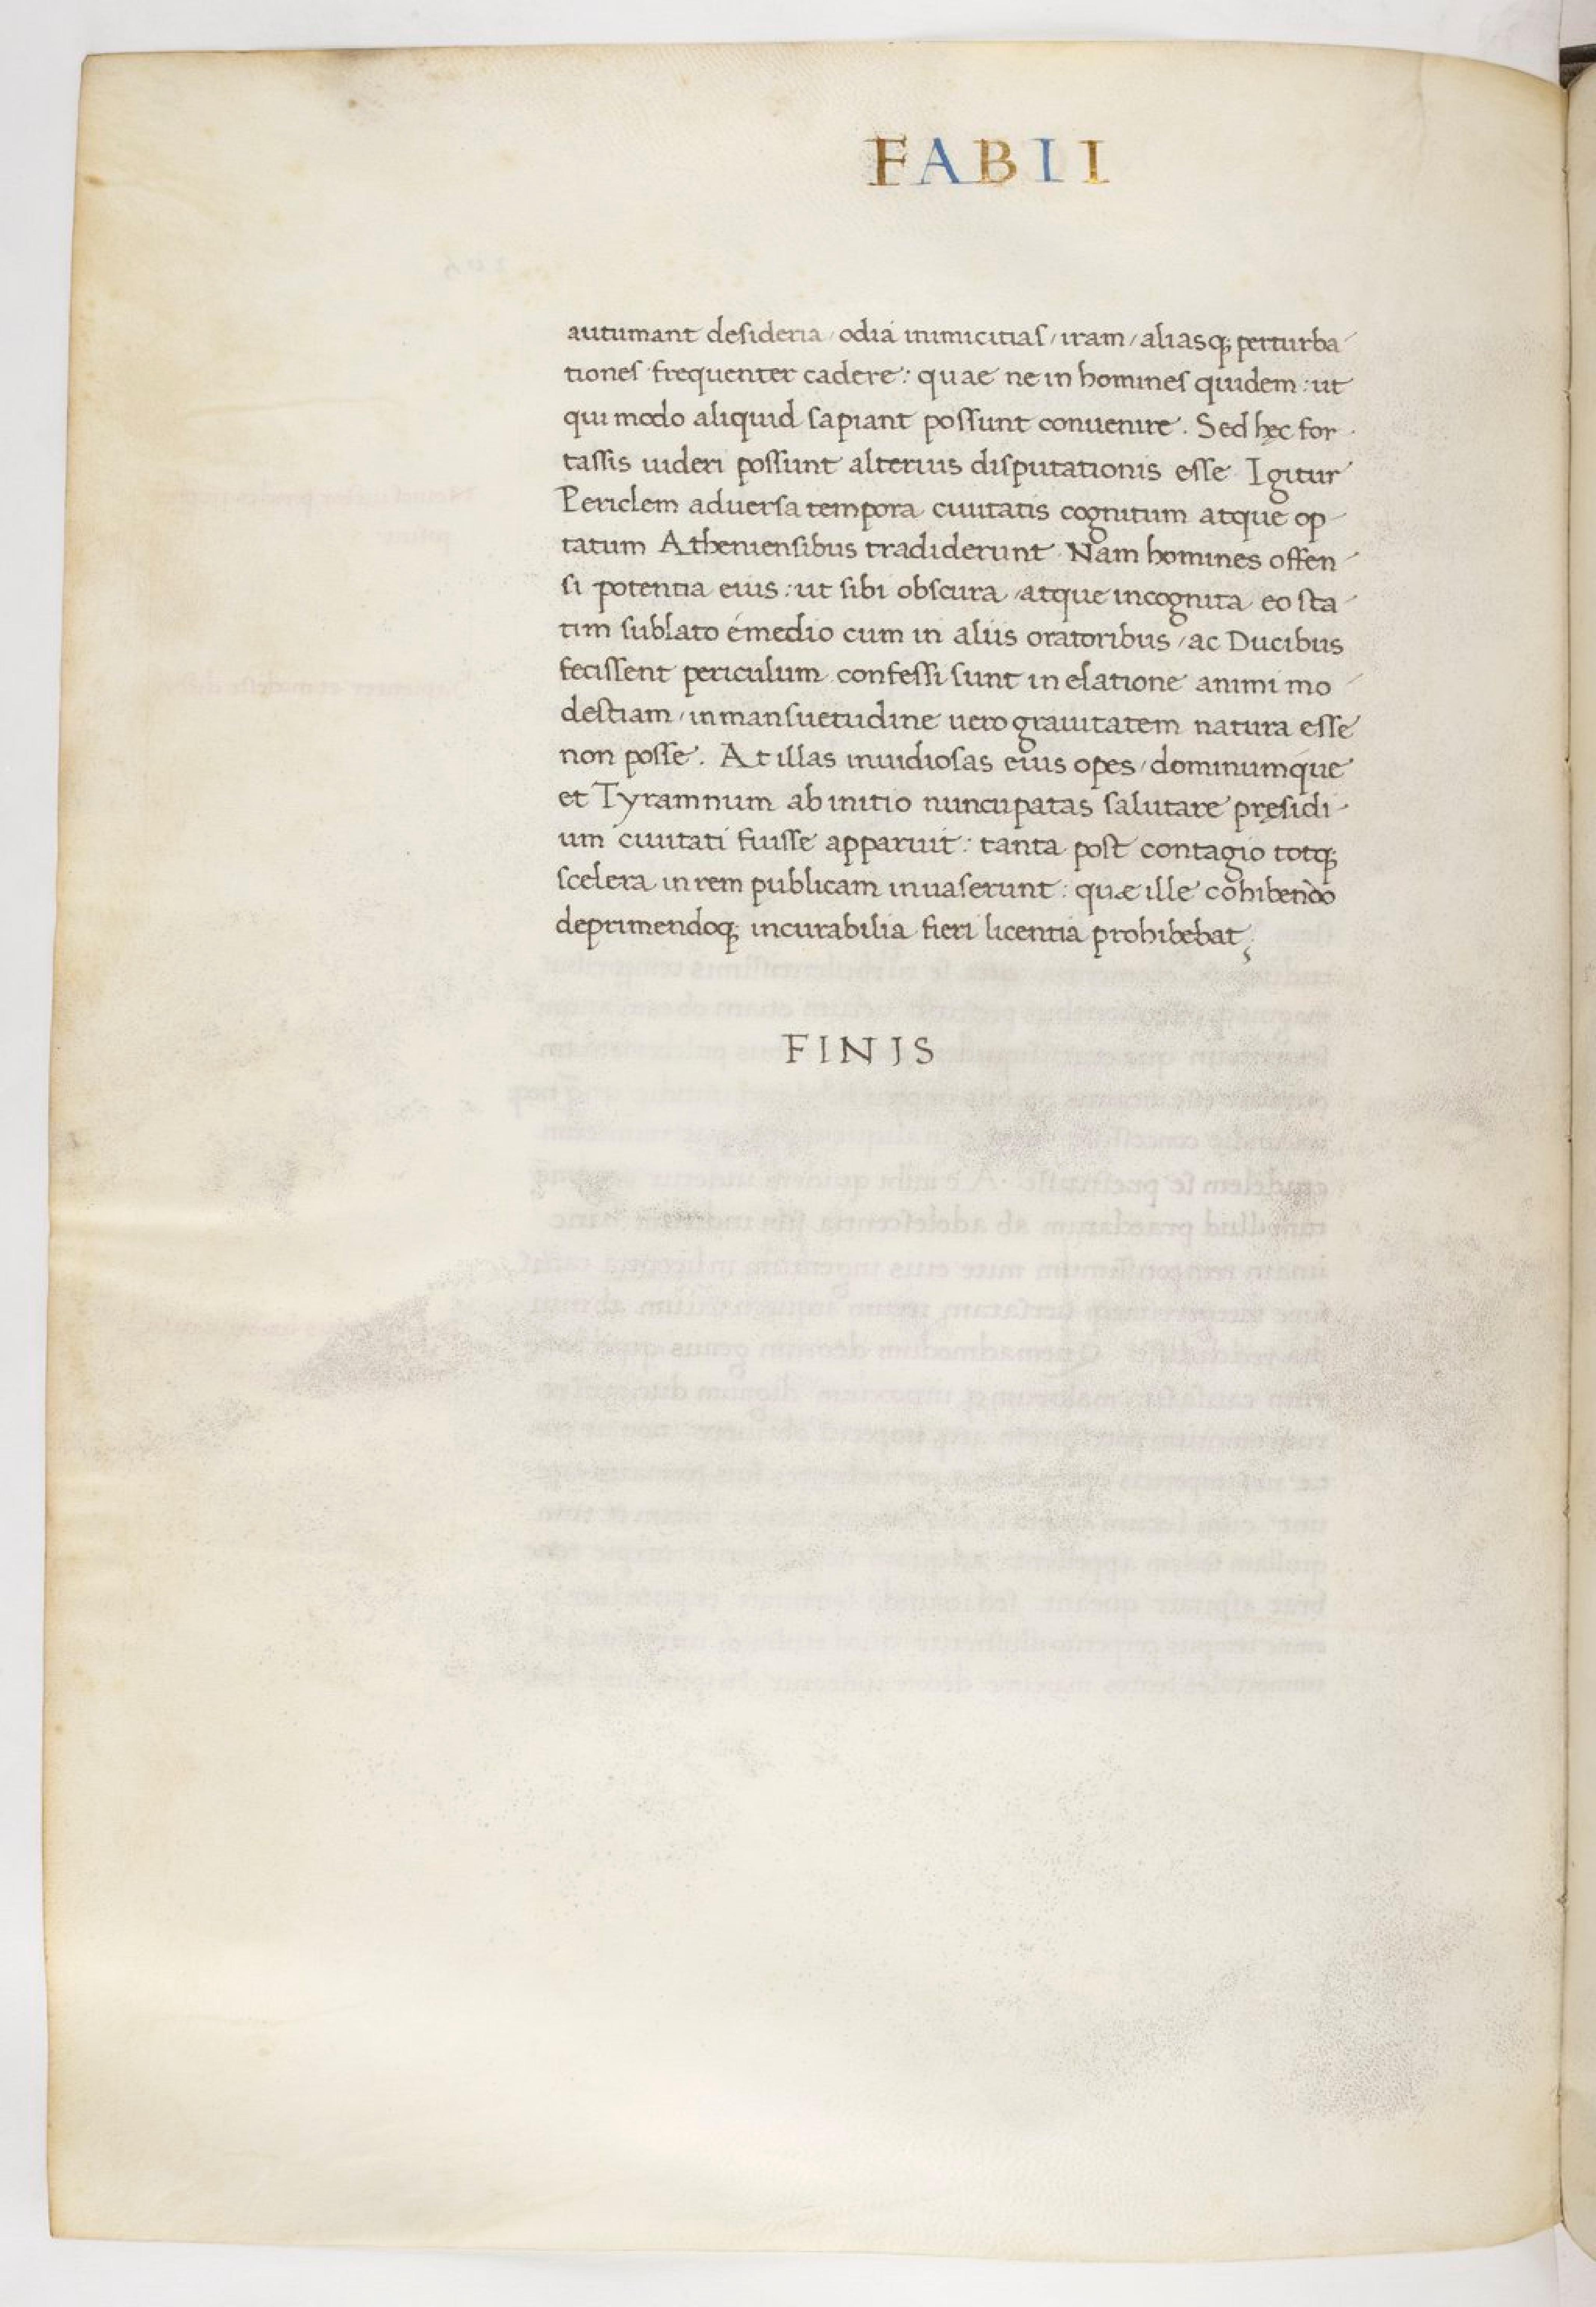 FABII
autumant desideria / odia inimicitias / iram / aliasq; perturba
tiones frequenter cadere: quae ne in homines quidem: ut
qui modo aliquid sapiant possunt conuenire. Sed hęc for
tassis uideri possunt alterius disputationis esse Igitur
Periclem aduersa tempora ciuitatis cognitum atque op
tatum Atheniensibus tradiderunt. Nam homines offen
si potentia eius: ut sibi obscura / atque incognita eo sta
tim sublato émedio cum in aliis oratoribus / ac Ducibus
fecissent periculum confessi sunt in elatione animi mo
destiam / in mansuetudine uero grauitatem natura esse
non posse. At illas inuidiosas eius opes / dominumque
et Tyramnum ab initio nuncupatas salutare pręsidi
um ciuitati fuisse apparuit: tanta post contagio totq;
scelera in rem publicam inuaserunt: quæ ille cohibendo
deprimendoq; incurabilia fieri licentia prohibebat;
FINIS